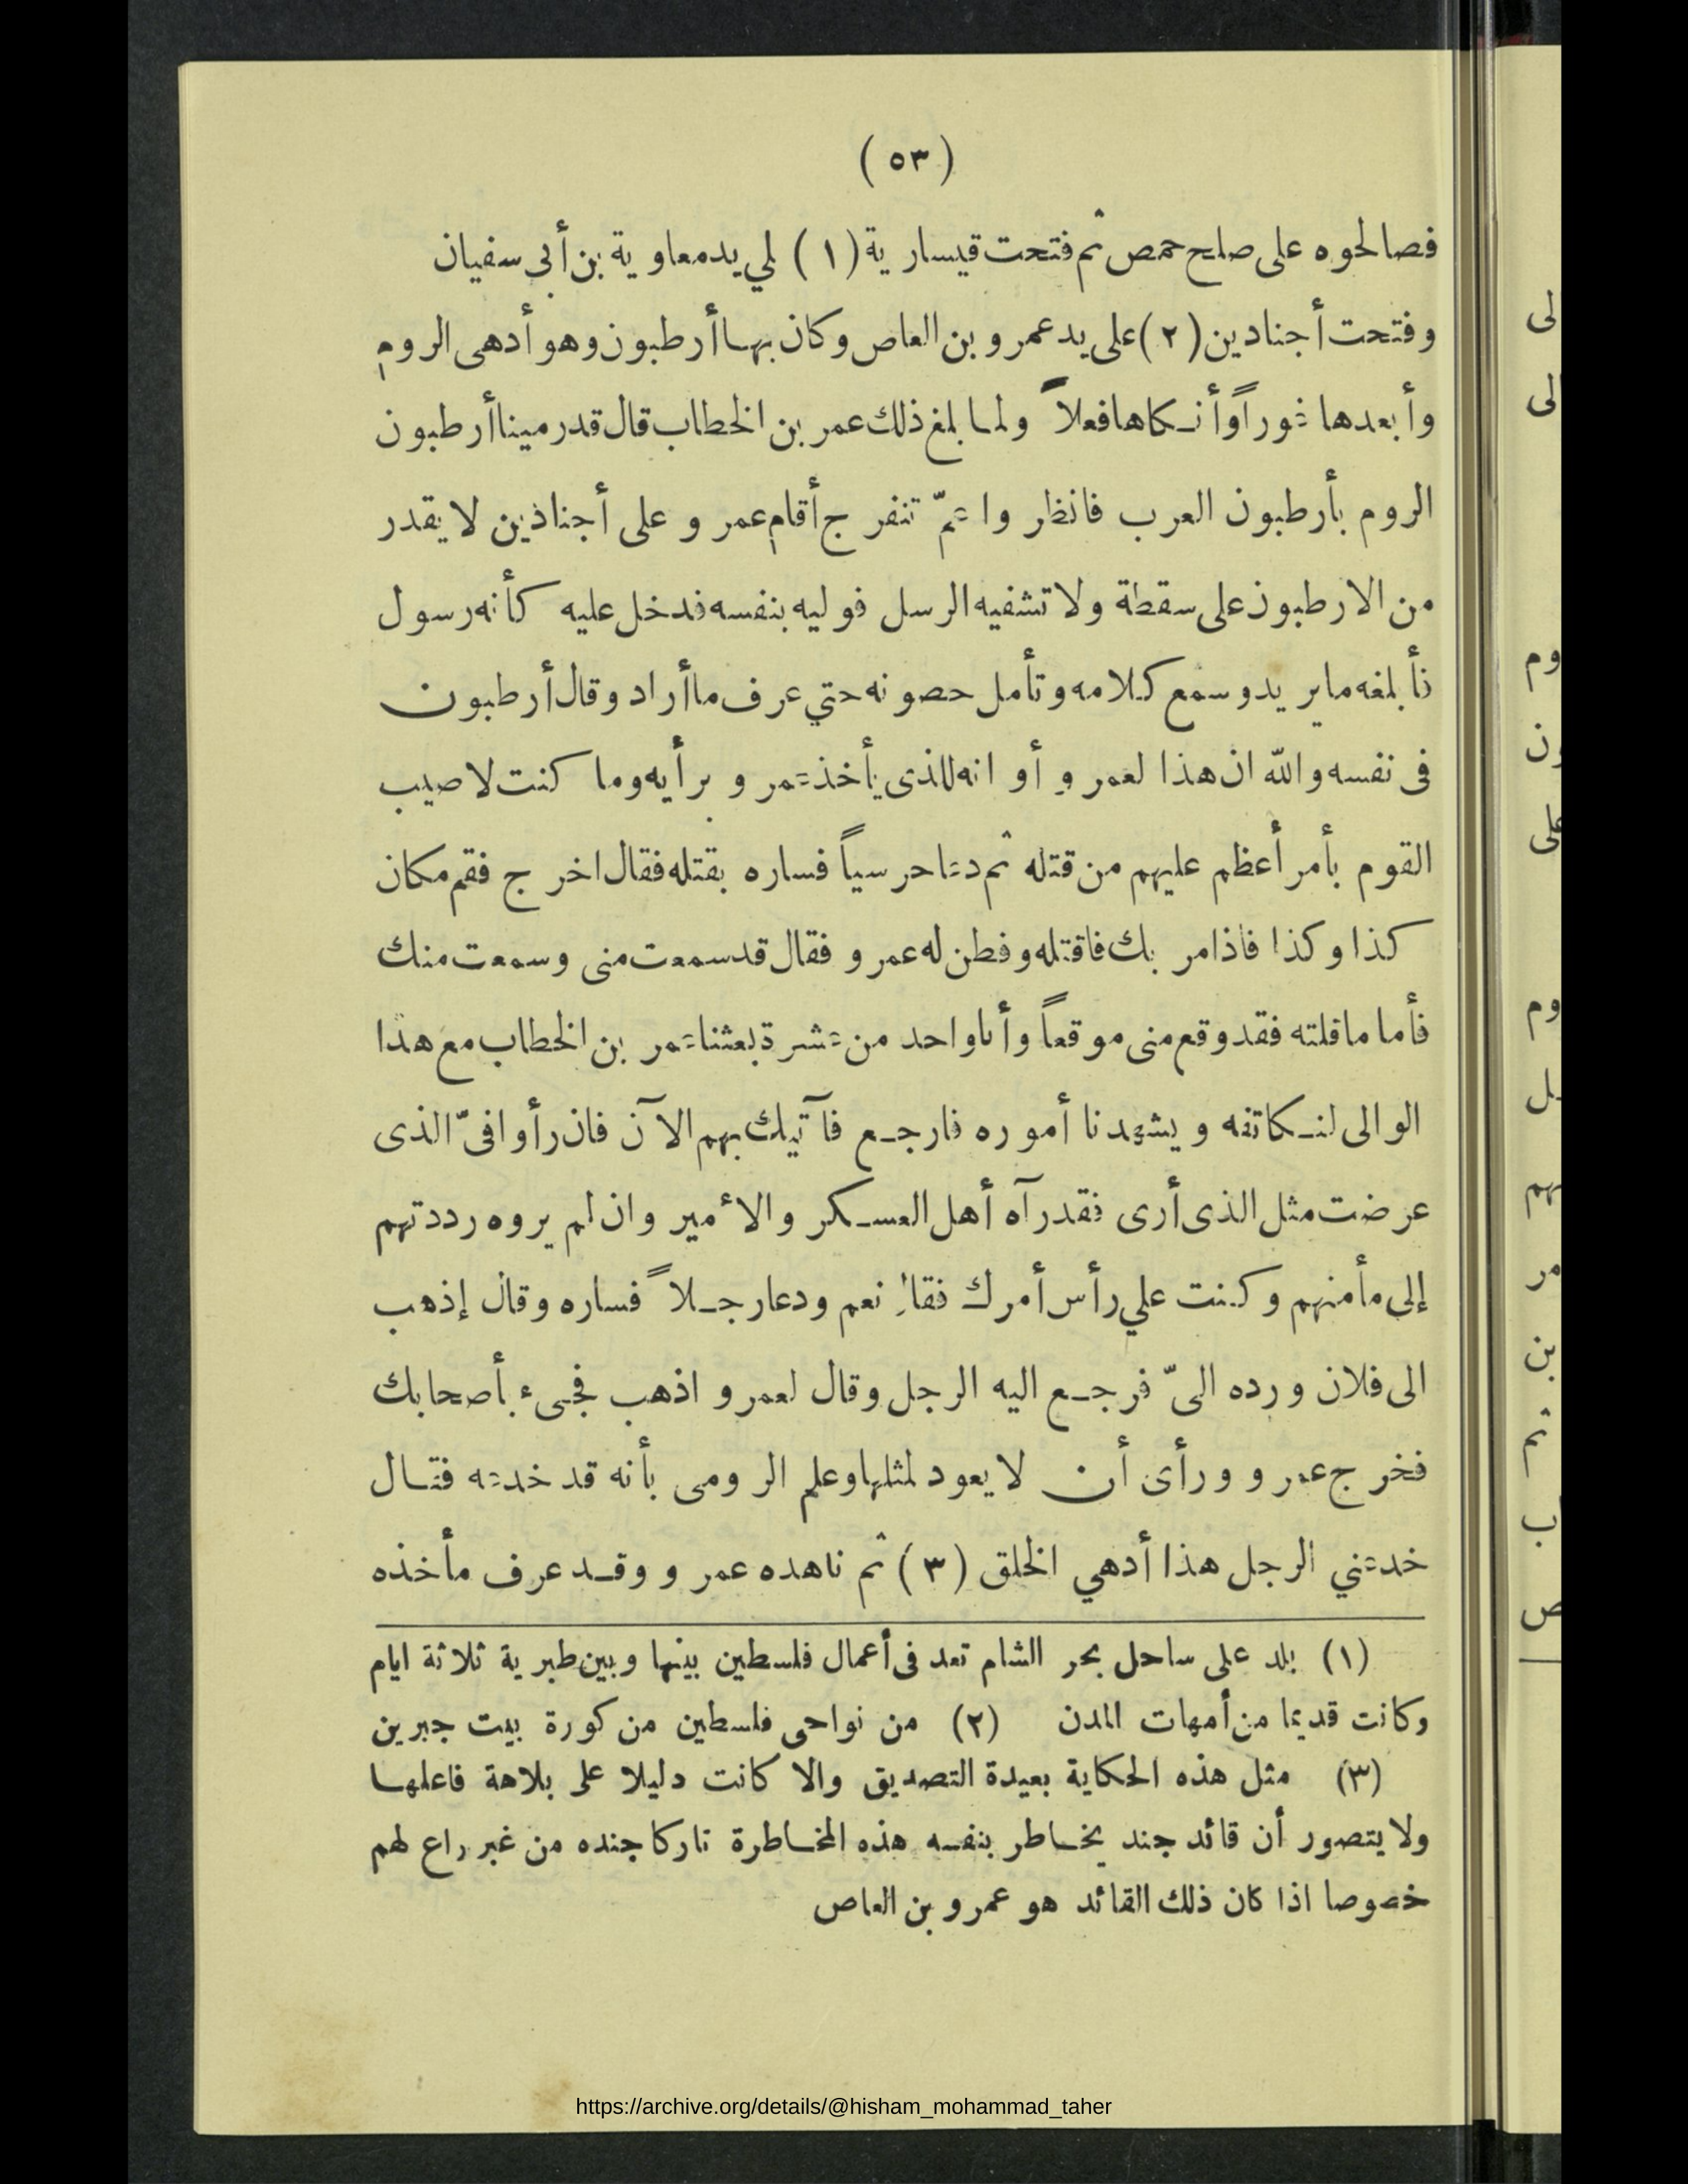 (٥٣)
فصالحوه على صلح حمص ثم فتحت قيسارية (١) لي يد معاوية بن أبى سفيان
وفتحت أجنادين (٢) على يد عمرو بن العاص وكان بها أرطبون وهو أدهى الروم
وأبعدها غوراً وأنكاها فعلاً ولما بلغ ذلك عمر بن الخطاب قال قد رمينا أرطبون
الروم بأرطبون العرب فانظروا عمّ تنفرج أقام عمرو على أجنادين لا يقدر
من الارطبون على سقطة ولا تشفيه الرسل فوليه بنفسه فدخل عليه كأنه رسول
فأبلغه ما يريد وسمع كلامه وتأمل حصونه حتي عرف ما أراد وقال أرطبون
فى نفسه والله ان هذا لعمرو أو انه للذى يأخذ عمرو برأيه وما كنت لاصيب
القوم بأمر أعظم عليهم من قتله ثم دعا حرسياً فساره بقتله فقال اخرج فقم مكان
كذا وكذا فاذا مر بك فاقتله وفطن له عمرو فقال قد سمعت منى وسمعت منك
فأما ما قلته فقد وقع منى موقعاً وأنا واحد من عشرة بعثنا عمر بن الخطاب مع هذا
الوالى لنكاتفه ويشهدنا أموره فارجع فآتيك بهم الآن فان رأوا فىّ الذى
عرضت مثل الذى أرى فقد رآه أهل العسكر والأمير وان لم يروه رددتهم
إلى مأمنهم وكنت علي رأس أمرك فقال نعم ودعا رجلاً فساره وقال إذهب
الى فلان ورده الىّ فرجع اليه الرجل وقال لعمرو اذهب فجىء بأصحابك
فخرج عمرو ورأى أن لا يعود لمثلها وعلم الرومى بأنه قد خدعه فقال
خدعني الرجل هذا أدهي الخلق (٣) ثم ناهده عمرو وقد عرف مأخذه
(١) بلد على ساحل بحر الشام تعد فى أعمال فلسطين بينها وبين طبرية ثلاثة ايام
وكانت قديما من أمهات المدن (٢) من نواحى فلسطين من كورة بيت جبرين
(٣) مثل هذه الحكاية بعيدة التصديق والا كانت دليلا على بلاهة فاعلها
ولا يتصور أن قائد جند يخاطر بنفسه هذه المخاطرة تاركا جنده من غير راع لهم
خصوصا اذا كان ذلك القائد هو عمرو بن العاص
https://archive.org/details/@hisham_mohammad_taher